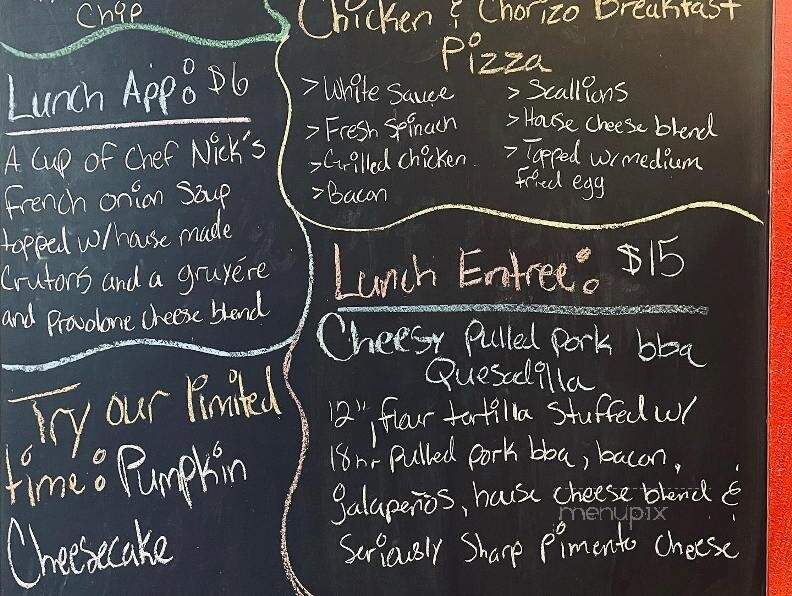 Chip
Lunch App: $6
A Cup of Chef Nick's
French onion Soup
topped w/house made
Crutons and a gruyére
and Provolone cheese blend
Try our limited
time: Pumpkin
Cheesecake
Chicken & Chorizo Breakfast
Pizza
> White Sauce
> Fresh Spinach
> Grilled chicken
> Bacon
> Scallions
> House cheese blend
> Topped w/medium
fried egg
Lunch Entree: $15
Cheesy Pulled Pork bbq
Quesadilla
12", flour tortilla Stuffed w/
18hr Pulled pork bbq, bacon,
jalapeños, house cheese blend &
Seriously Sharp Pimento Cheese
menupix